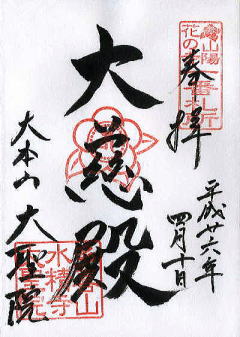 奉拝
平成廿六年
四月十日
大慈殿
大本山 大聖院
山陽
花の寺
水精寺